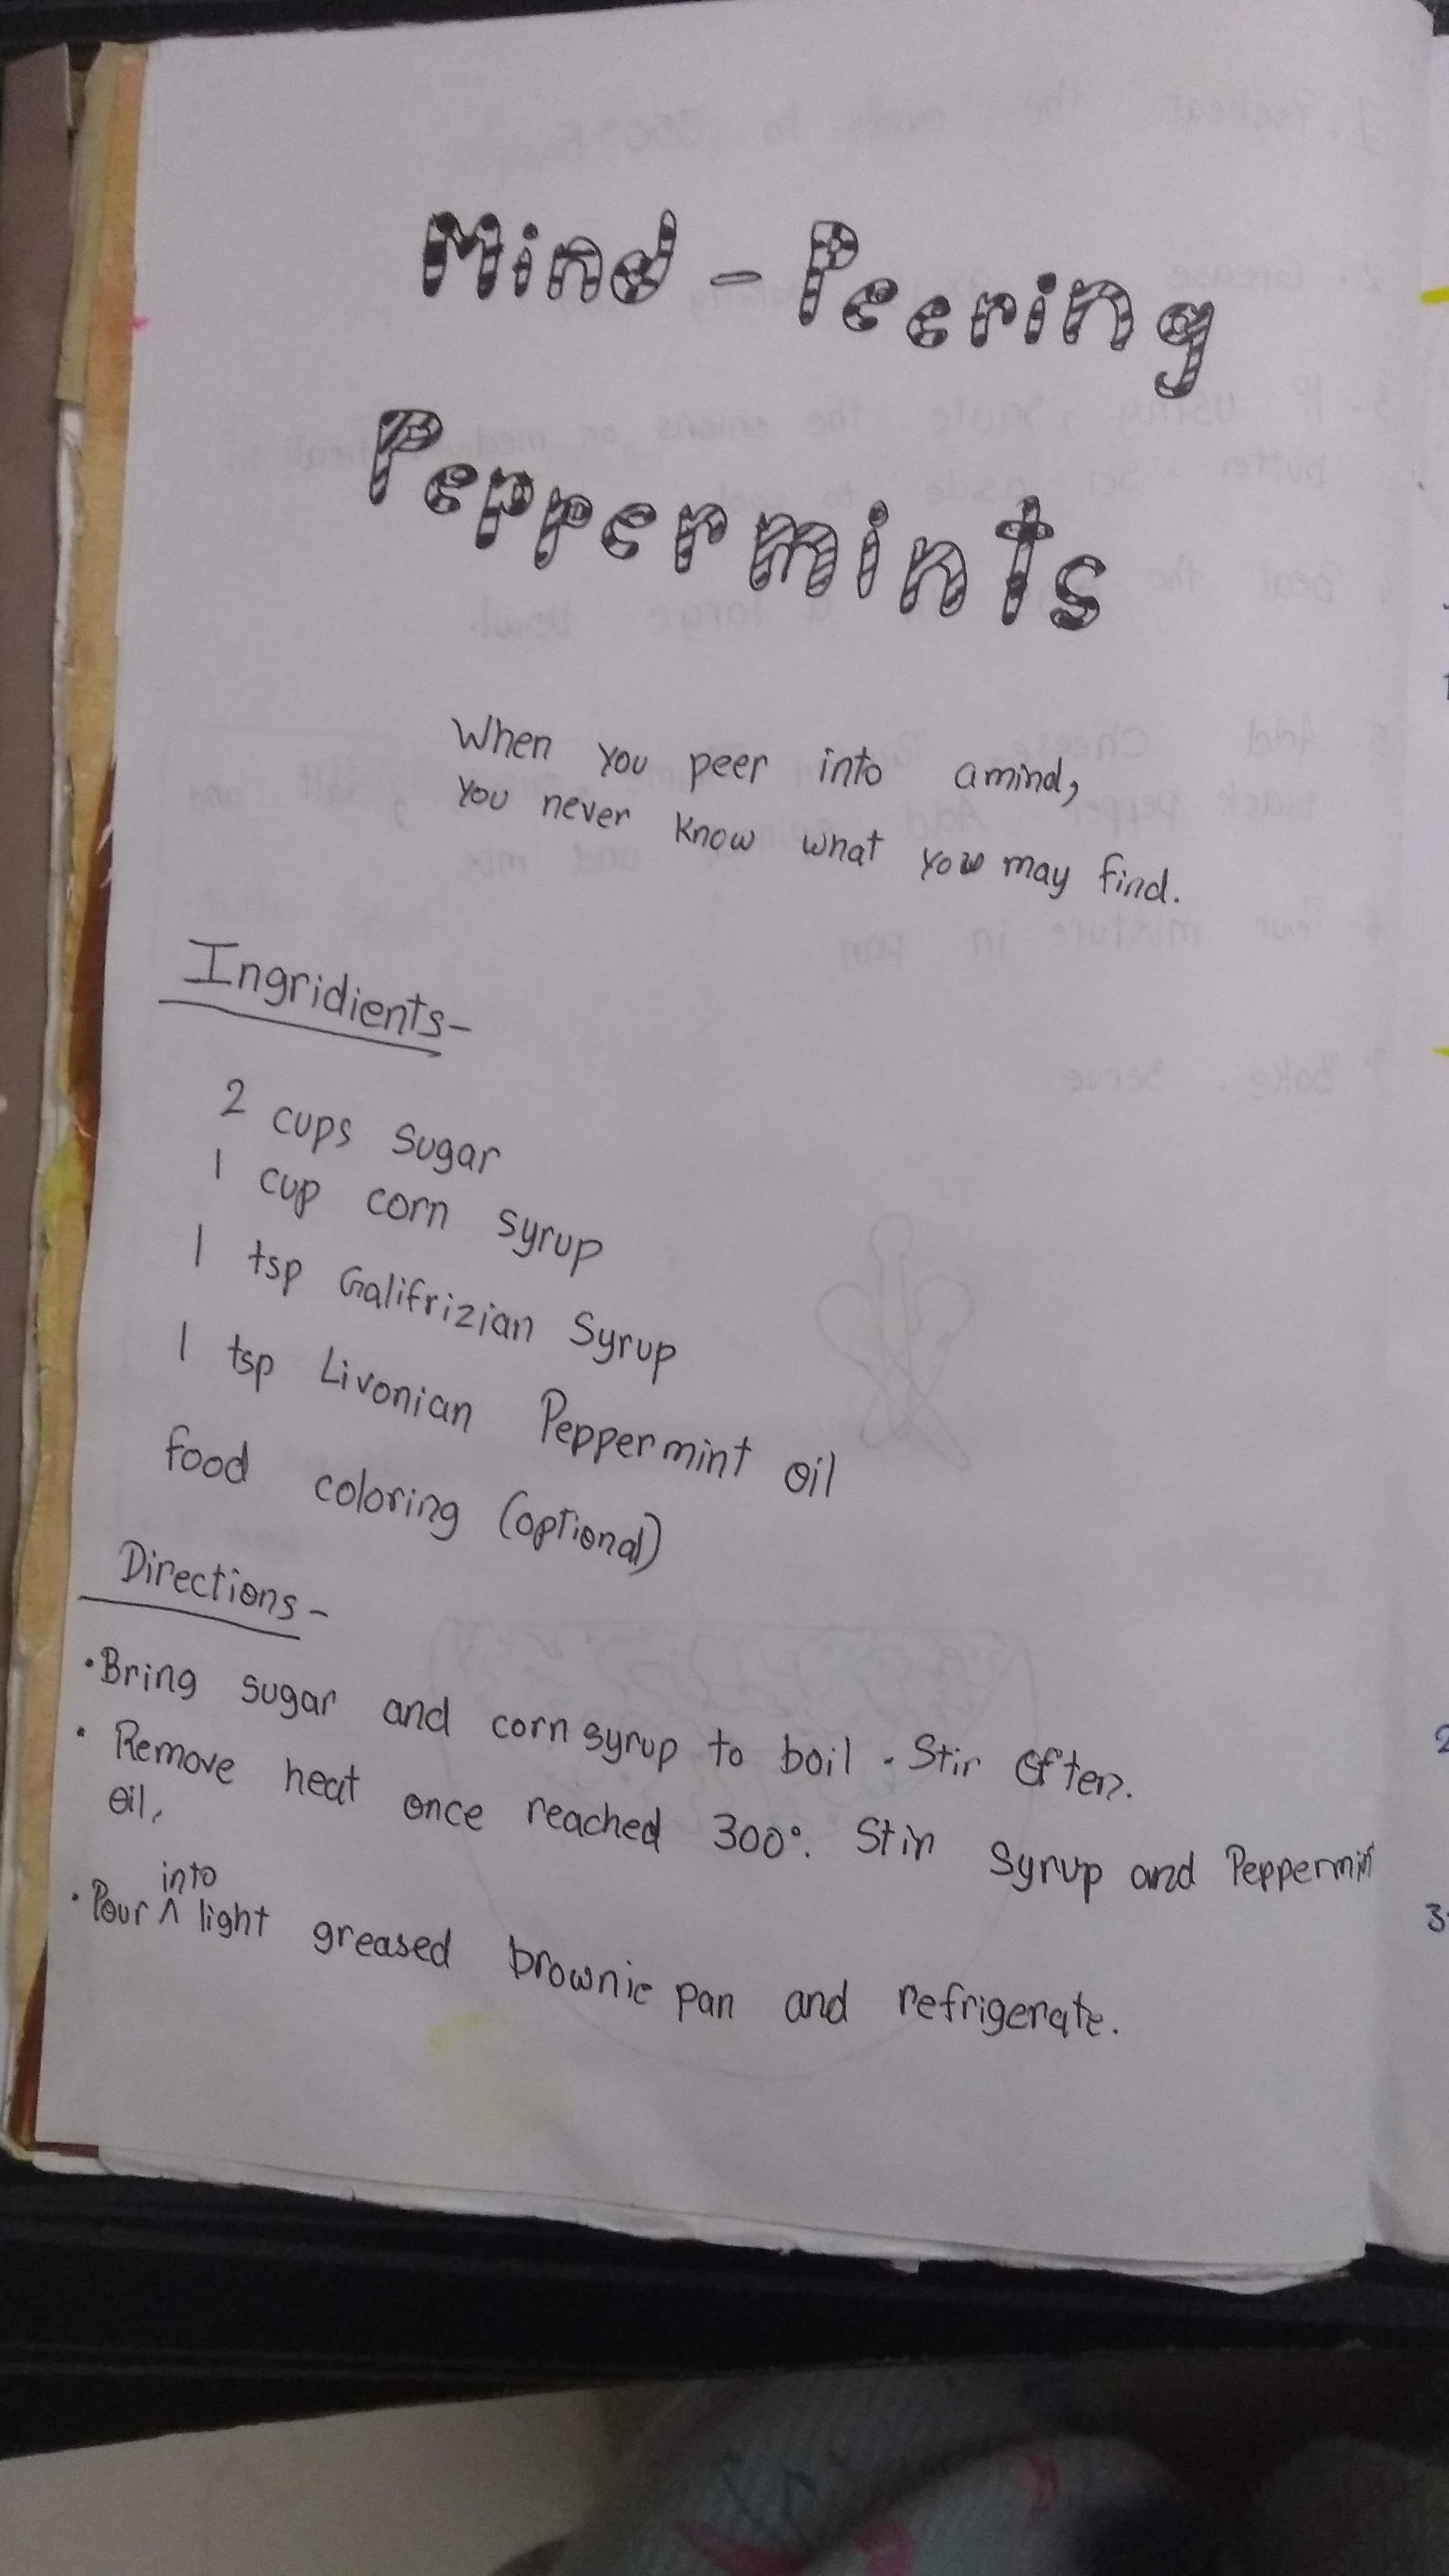 Mind-Peering
Peppermints
When you peer into a mind,
You never know what you may find.
Ingridients-
2 cups sugar
1 cup corn syrup
1 tsp Galifrizian Syrup
1 tsp Livonian Peppermint oil
food coloring (optional)
Directions-
•Bring sugar and corn syrup to boil. Stir often.
• Remove heat once reached 300°. Stir Syrup and Peppermint
oil.
into
•Pour ^ light greased brownie pan and refrigerate.
2
3